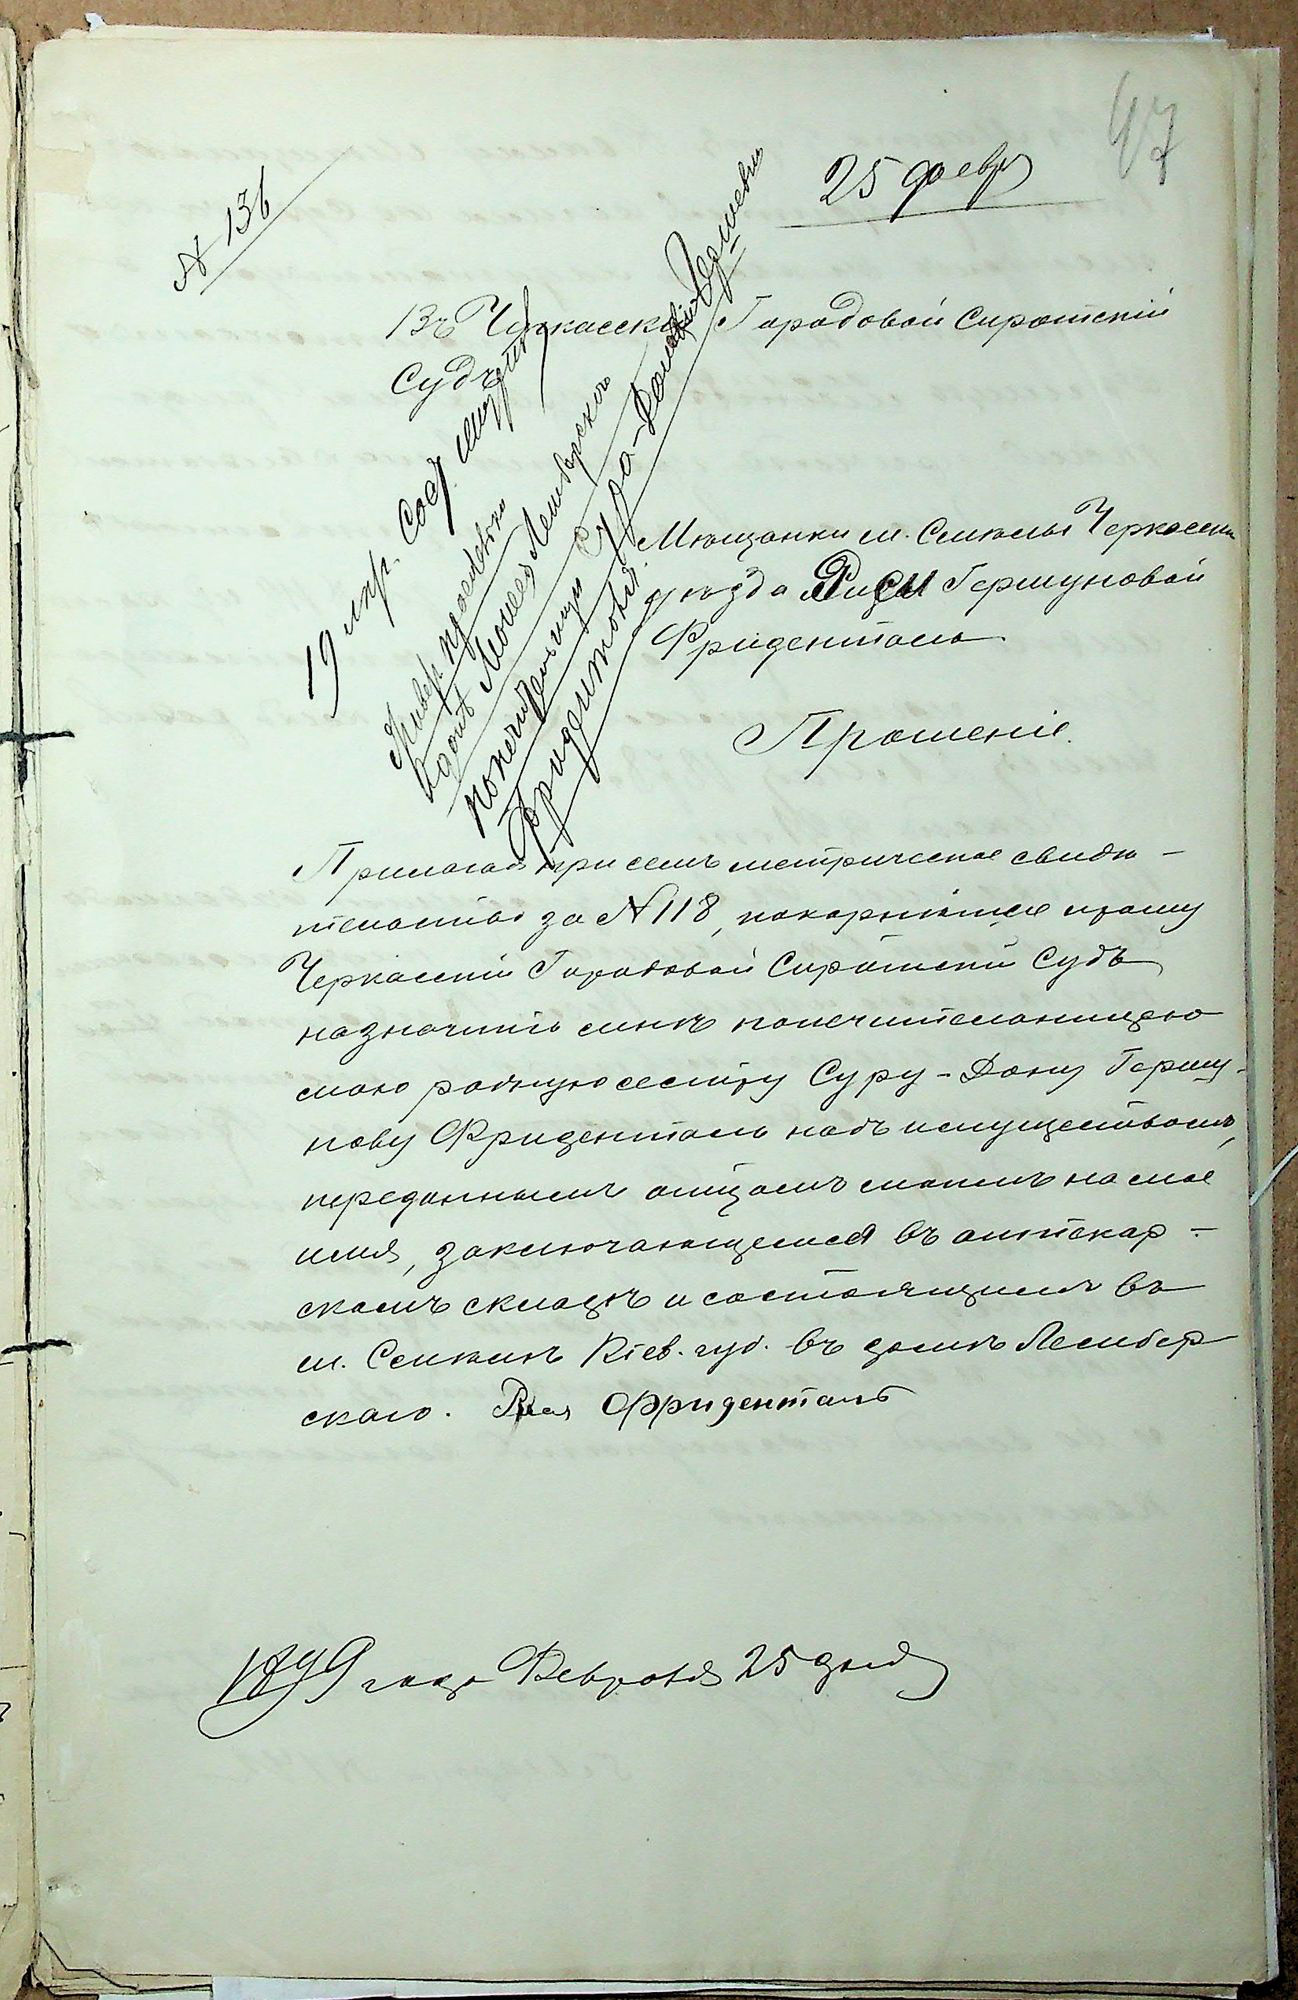 47
25 февр
№ 136
Въ Черкасскій Городовой Сиротскій
Судъ
19 мар. сост.
Живер.
Моисея Лемберского
попечительницу Сура-Доня Гершевна
Фридентоль
Мѣщанки м. Смѣлы Черкасска
уѣзда Рисы Гершуновой
Фриденталь
Прошеніе.
Прилагая при семъ метрическое свидѣ-
тельство за № 118, покорнѣйше прошу
Черкасскій Городовой Сиротскій Судъ
назначить мнѣ попечительницею
мою родную сестру Суру-Доню Гершу-
нову Фриденталь надъ имуществомъ,
переданнымъ отцомъ моимъ на мое
имя, заключающемся въ аптекар-
скомъ складѣ и состоящимъ въ
м. Смѣлѣ Кіев. губ. въ домѣ Лембер
скаго. Рися Фриденталь
1899 года Февраля 25 дня